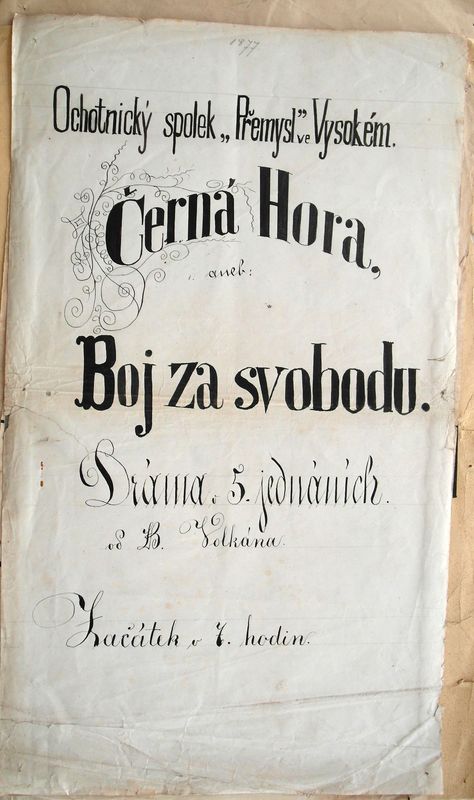 1877
Ochotnický spolek „Přemysl” ve Vysokém.
Černá Hora,
aneb:
Boj za svobodu.
Dráma v 5. jednáních.
od B. Volkána.
Začátek o 7. hodin.